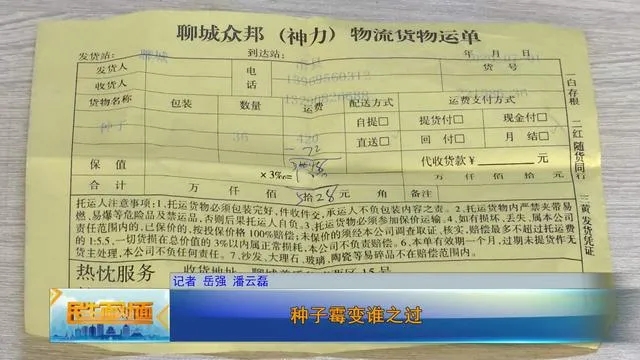 聊城众邦（神力）物流货物运单
发货站： 聊城 到达站： 年 月 日
发货人 电话 货号
收货人
货物名称 包装 数量 运费 配送方式 运费支付方式
种子 36 420 自提□ 提货付□ 现金付□
直送□ 回付□ 月结□
72
保值 ×3‰= 代收货款¥ 元
合计 万 仟 佰 拾 28 元 角 备注
托运人注意事项：1、托运货物必须包装完好，件收件交，承运人不负包装内容之责。2、托运货物内严禁夹带易
燃、易爆等危险品及禁运品，否则后果托运人自负。3、托运货物必须参加保价运输。4、如有损坏、丢失、属本公司
责任范围内的，已保价的，按投保价格100%赔偿；未保价的须经本公司调查取证、核实，赔偿最多不超过托运费
的1:5.5，一切损耗在总价值的3%以内属正常损耗，本公司不负责赔偿。6、本单有效期一个月，过期未提货作无
货主处理，本公司不负任何责任。7、沙发、大理石、玻璃、陶瓷等易碎品不在赔偿范围内。
热忱服务 收货地址 15号
一白存根 二红随货同行 三黄发货凭证
记者 岳强 潘云磊
民生面对面
种子霉变谁之过